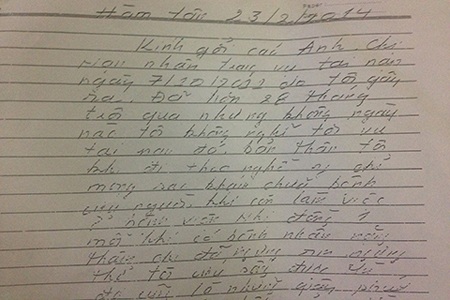 Hàm tân 23/2/2014
Kính gởi các Anh, Chị
nạn nhân trong vụ tai nạn
ngày 7/10/2011 do tôi gây
ra. Đã hơn 28 tháng
trôi qua nhưng không ngày
nào tôi không nghĩ tới vụ
tai nạn đó bản thân tôi
khi đi học nghề y chỉ
mong sao khám chữa bệnh
cứu người khi còn làm việc
ở bệnh viện khi đứng
một khi có bệnh nhân nặng
thậm chí đã ngừng
thở tôi cứu sống được